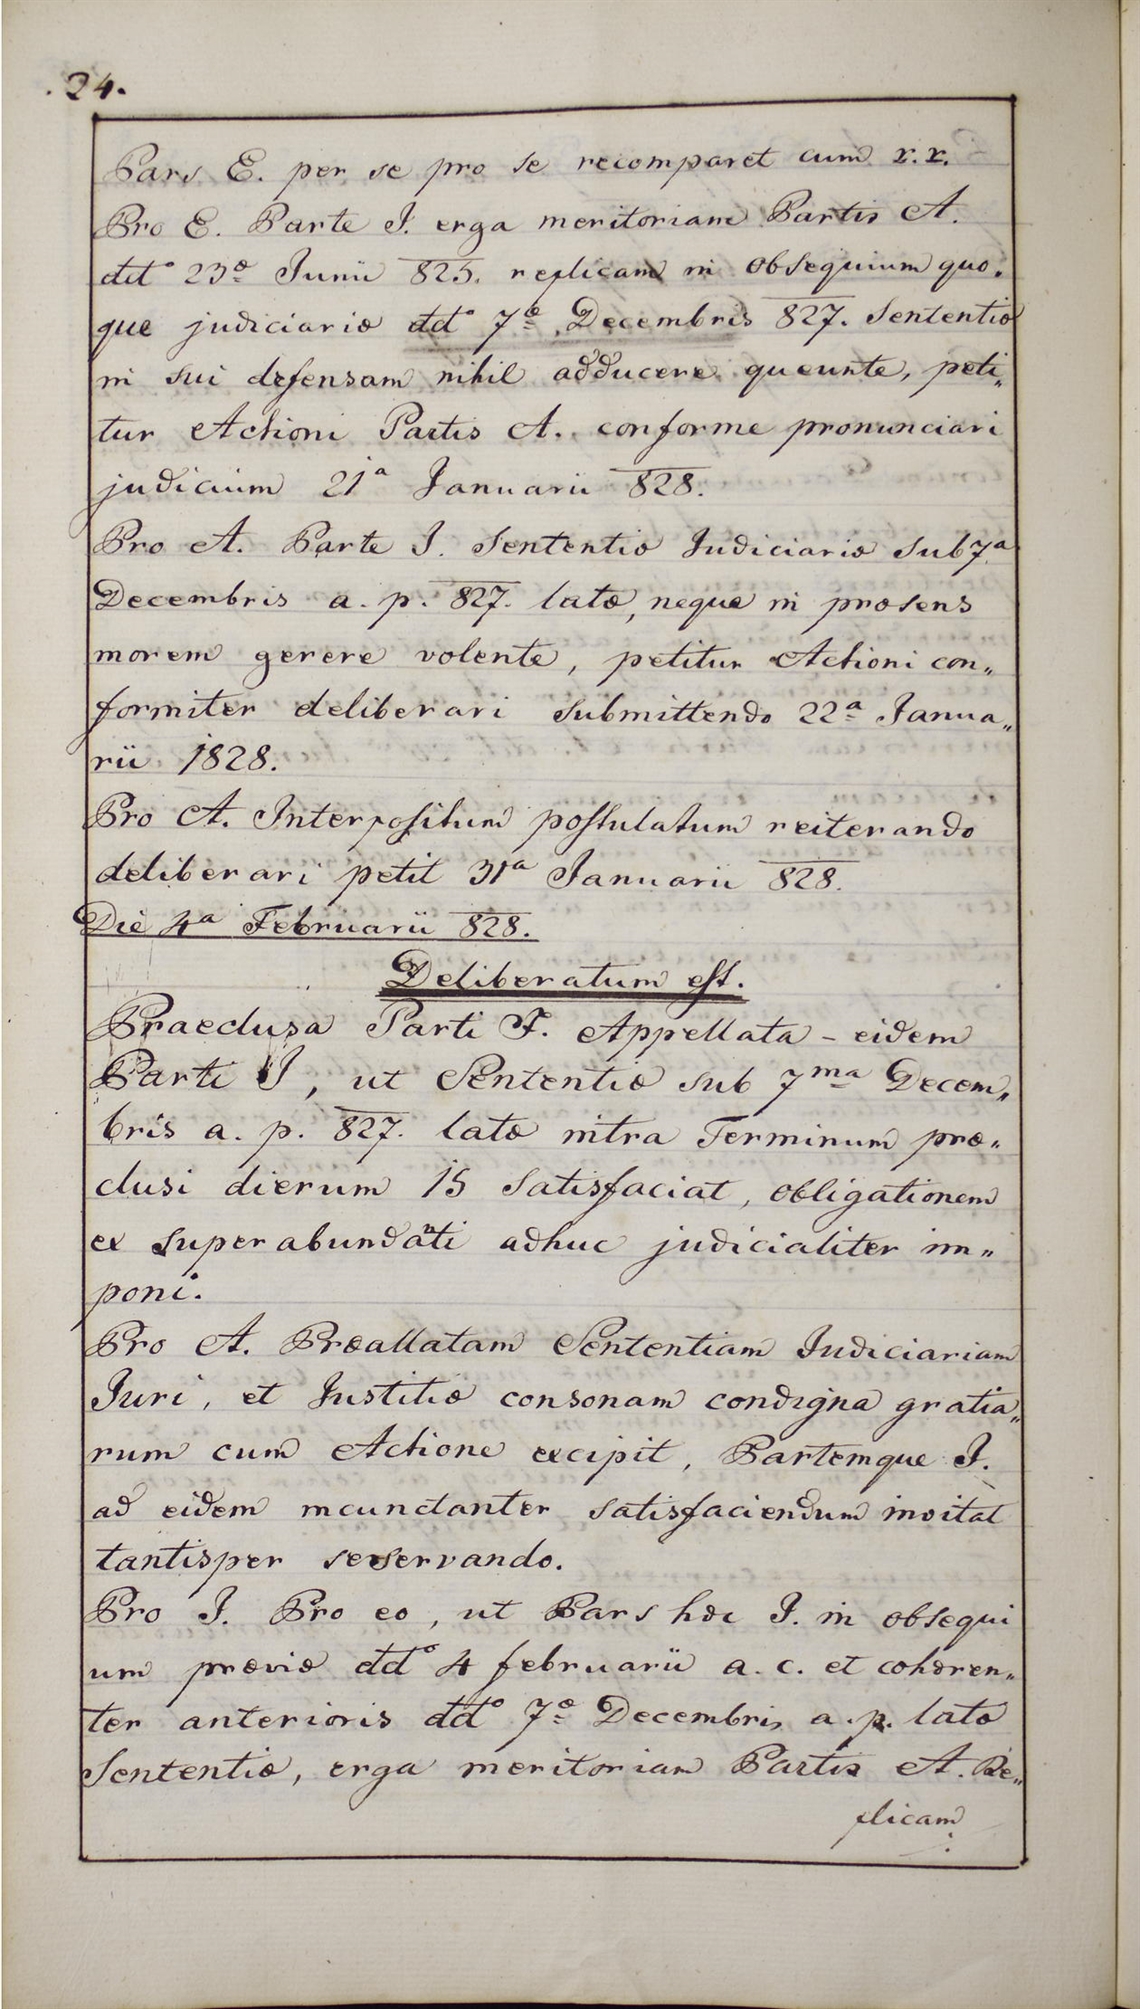 .24.
Pars E. per se pro se recomparet cum r.r.
Pro E. Parte I. erga meritoriam Partis A.
ddto 23a Junii 825. replicam in obsequium quo,
que judiciariæ ddto 7æ Decembris 827. Sententiæ
in sui defensam nihil adducere queunte, peti„
tur Actioni Partis A. conforme pronunciari
judicium 21a Januarii 828.
Pro A. Parte I. Sententiæ Judiciariæ sub 7a
Decembris a. p. 827. latæ, neque in præsens
morem gerere volente, petitur Actioni con„
formiter deliberari submittendo 22a Janua„
rii 1828.
Pro A. Interpositum postulatum reiterando
deliberari petit 31a Januarii 828.
Die 4a Februarii 828.
Deliberatum est.
Praeclusa Parti I. Appellata – eidem
Parti I, ut Sententiæ sub 7ma Decem„
bris a. p. 827. latæ intra Terminum præ„
clusi dierum 15 satisfaciat, obligationem
ex superabundanti adhuc judicialiter im„
poni.
Pro A. Præallatam Sententiam Judiciariam
Juri, et Justitiæ consonam condigna gratia„
rum cum Actione excipit, Partemque I.
ad eidem incunctanter satisfaciendum invitat
tantisper seservando.
Pro I. Pro eo, ut Pars hæc I. in obsequi
um præviæ ddto 4 februarii a. c. et cohæren„
ter anterioris ddto 7æ Decembris a. p. latæ
Sententiæ, erga meritoriam Partis A. Re„
plicam